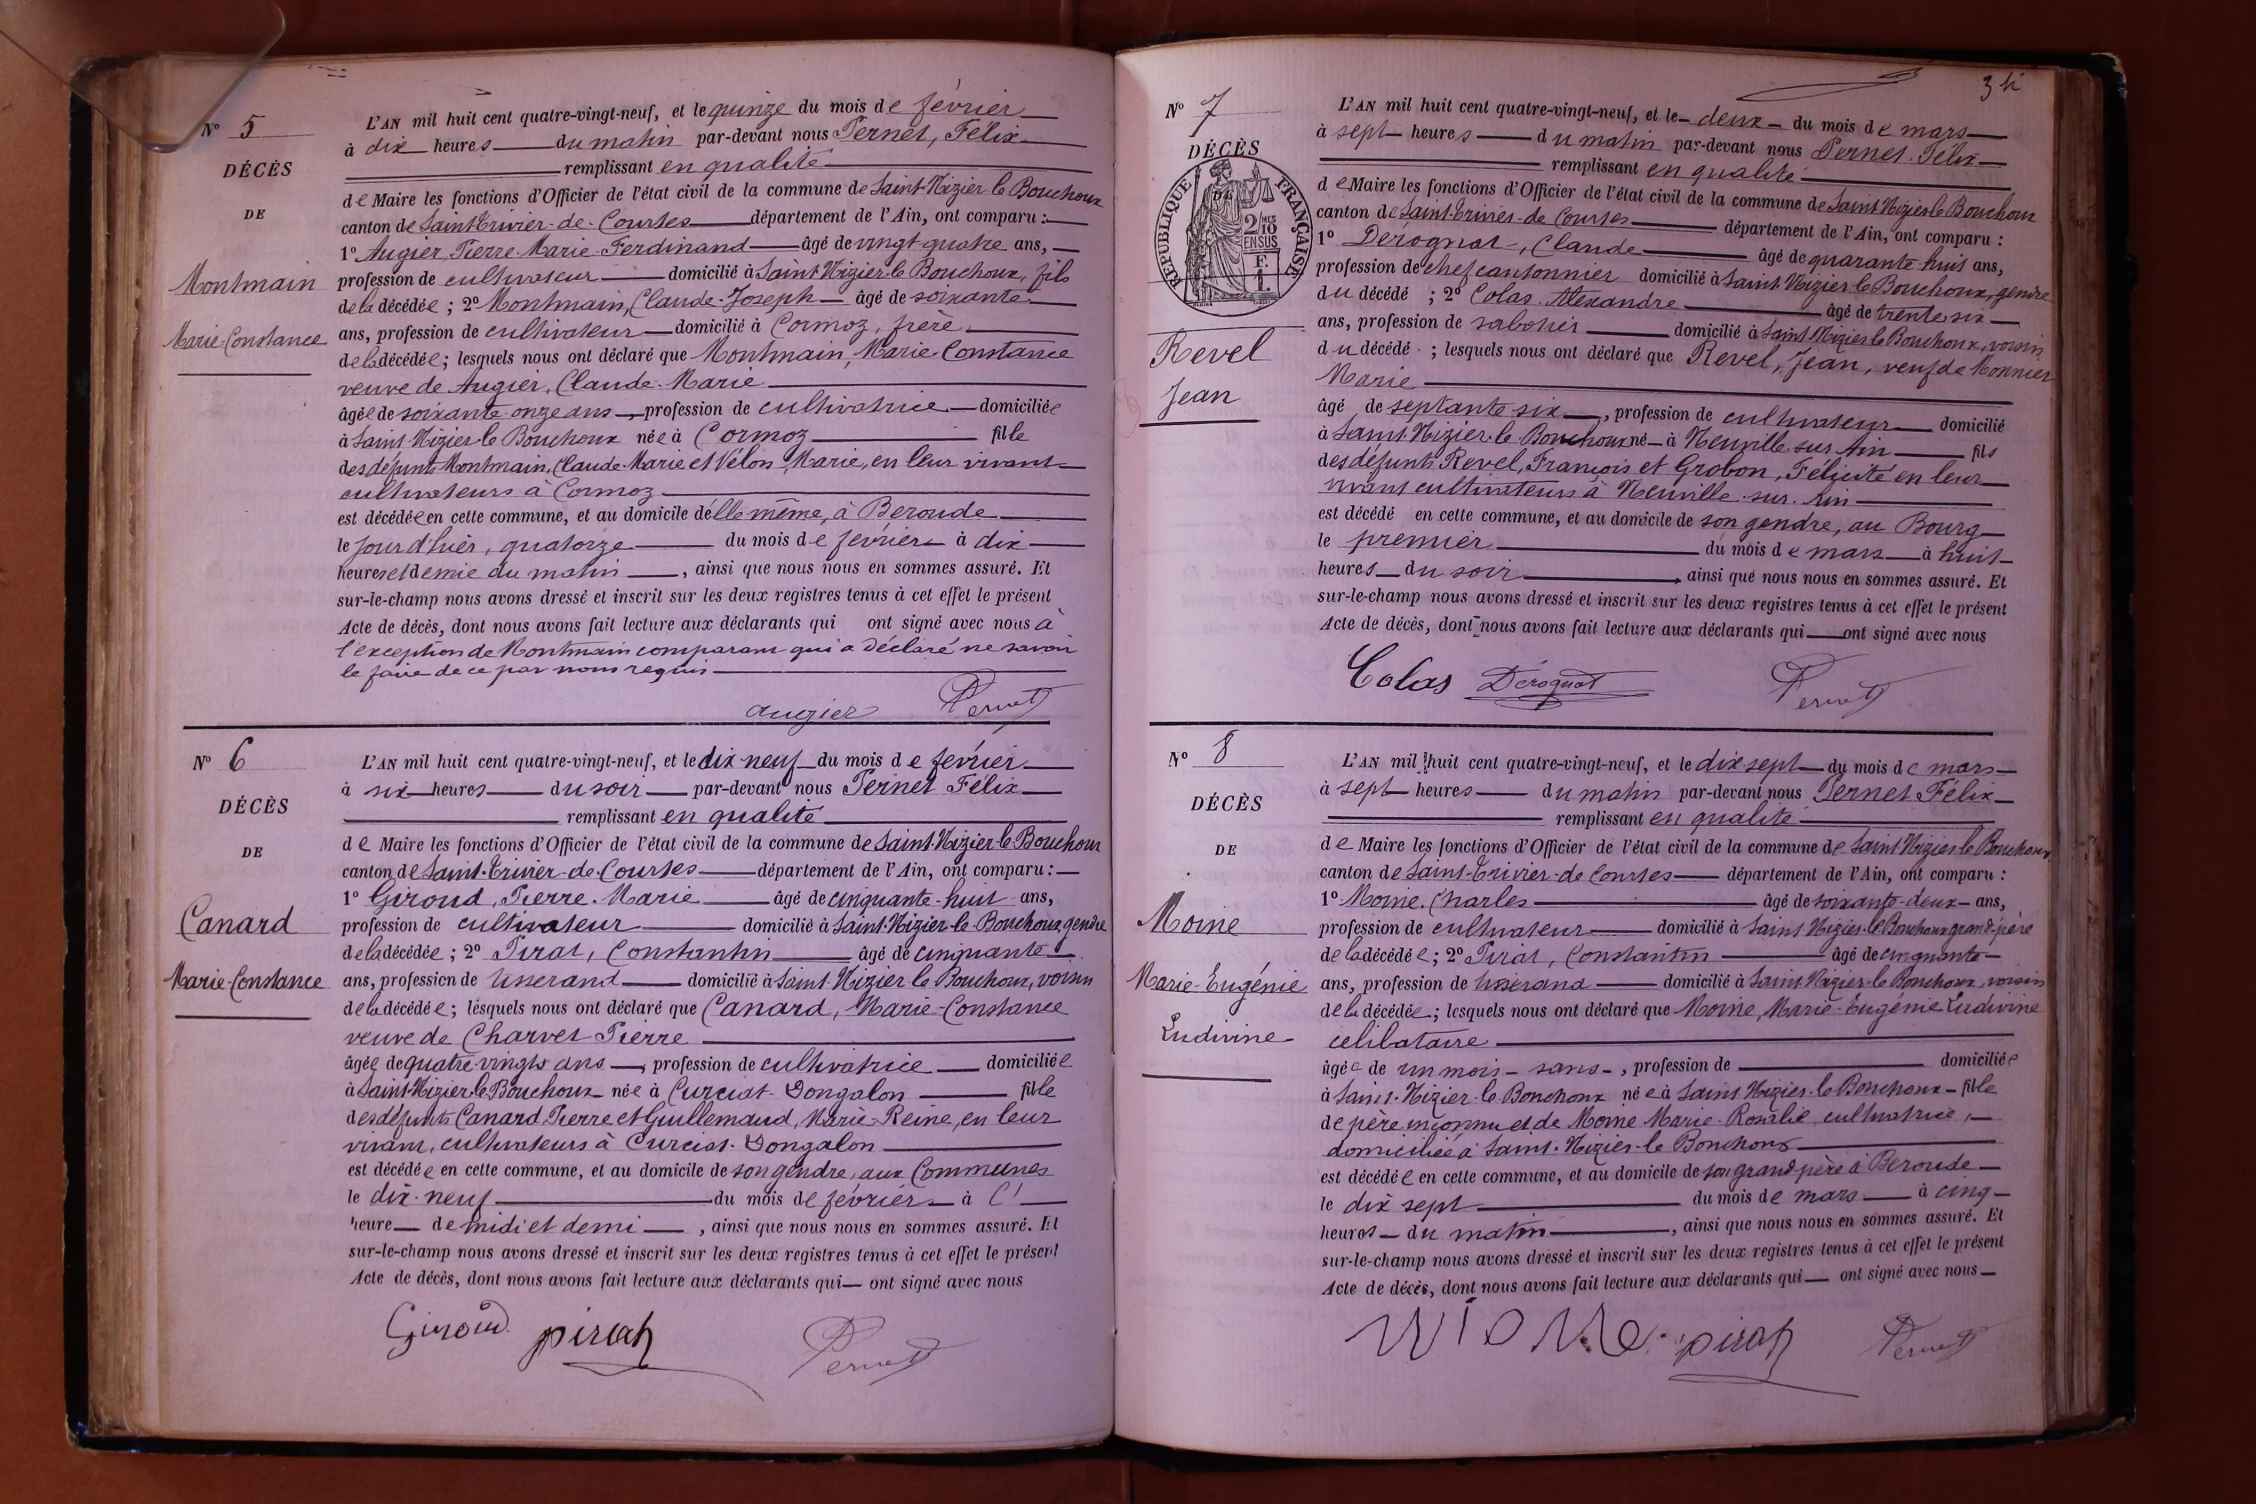 N° 5
DÉCÈS
DE
Montmain
Marie-Constance
L'AN mil huit cent quatre-vingt-neuf, et le quinze du mois de février
à dix heures du matin par-devant nous Pernet, Félix
remplissant en qualité
de Maire les fonctions d'Officier de l'état civil de la commune de Saint-Nizier-le-Bouchoux
canton de Saint-Trivier-de-Courtes département de l'Ain, ont comparu :
1° Augier, Pierre Marie Ferdinand âgé de vingt-quatre ans,
profession de cultivateur domicilié à Saint-Nizier-le-Bouchoux, fils
de la décédée ; 2° Montmain, Claude-Joseph âgé de soixante
ans, profession de cultivateur domicilié à Cormoz, frère
de la décédée ; lesquels nous ont déclaré que Montmain, Marie-Constance
veuve de Augier, Claude-Marie
âgée de soixante-onze ans, profession de cultivatrice domiciliée
à Saint-Nizier-le-Bouchoux née à Cormoz fille
des défunts Montmain, Claude-Marie et Vélon, Marie, en leur vivant
cultivateurs à Cormoz
est décédée en cette commune, et au domicile d'elle même, à Beroude
le jour d'hier, quatorze du mois de février à dix
heures et demie du matin, ainsi que nous nous en sommes assuré. Et
sur-le-champ nous avons dressé et inscrit sur les deux registres tenus à cet effet le présent
Acte de décès, dont nous avons fait lecture aux déclarants qui ont signé avec nous à
l'exception de Montmain comparant qui a déclaré ne savoir
le faire de ce par nous requis
augier Pernet
N° 6
DÉCÈS
DE
Canard
Marie-Constance
L'AN mil huit cent quatre-vingt-neuf, et le dix-neuf du mois de février
à six heures du soir par-devant nous Pernet Félix
remplissant en qualité
de Maire les fonctions d'Officier de l'état civil de la commune de Saint-Nizier-le-Bouchoux
canton de Saint-Trivier-de-Courtes département de l'Ain, ont comparu :
1° Giroud, Pierre-Marie âgé de cinquante-huit ans,
profession de cultivateur domicilié à Saint-Nizier-le-Bouchoux, gendre
de la décédée ; 2° Pirat, Constantin âgé de cinquante
ans, profession de tisserand domicilié à Saint-Nizier-le-Bouchoux, voisin
de la décédée ; lesquels nous ont déclaré que Canard, Marie-Constance
veuve de Charvet Pierre
âgée de quatre-vingts ans, profession de cultivatrice domiciliée
à Saint-Nizier-le-Bouchoux née à Curciat-Dongalon fille
des défunts Canard Pierre et Guillemaud, Marie-Reine, en leur
vivant, cultivateurs à Curciat-Dongalon
est décédée en cette commune, et au domicile de son gendre, aux Communes
le dix-neuf du mois de février à l'
heure de midi et demi, ainsi que nous nous en sommes assuré. Et
sur-le-champ nous avons dressé et inscrit sur les deux registres tenus à cet effet le présent
Acte de décès, dont nous avons fait lecture aux déclarants qui ont signé avec nous
Giroud pirat Pernet
34
N° 7
DÉCÈS
RÉPUBLIQUE FRANÇAISE
DE
2/10 MES
EN SUS
F.
1.
Revel
Jean
L'AN mil huit cent quatre-vingt-neuf, et le deux du mois de mars
à sept heures du matin par-devant nous Pernet Félix
remplissant en qualité
de Maire les fonctions d'Officier de l'état civil de la commune de Saint-Nizier-le-Bouchoux
canton de Saint-Trivier-de-Courtes département de l'Ain, ont comparu :
1° Dérognat, Claude âgé de quarante-huit ans,
profession de chef cantonnier domicilié à Saint-Nizier-le-Bouchoux, gendre
du décédé ; 2° Colas Alexandre âgé de trente-six
ans, profession de sabotier domicilié à Saint-Nizier-le-Bouchoux, voisin
du décédé ; lesquels nous ont déclaré que Revel, Jean, veuf de Monnier
Marie
âgé de septante-six, profession de cultivateur domicilié
à Saint-Nizier-le-Bouchoux né à Neuville sur Ain fils
des défunts Revel, François et Grobon, Félicité en leur
vivant cultivateurs à Neuville-sur-Ain
est décédé en cette commune, et au domicile de son gendre, au Bourg
le premier du mois de mars à huit
heures du soir, ainsi que nous nous en sommes assuré. Et
sur-le-champ nous avons dressé et inscrit sur les deux registres tenus à cet effet le présent
Acte de décès, dont nous avons fait lecture aux déclarants qui ont signé avec nous
Colas Dérognat Pernet
N° 8
DÉCÈS
DE
Moine
Marie-Eugénie
Ludivine
L'AN mil huit cent quatre-vingt-neuf, et le dix sept du mois de mars
à sept heures du matin par-devant nous Pernet Félix
remplissant en qualité
de Maire les fonctions d'Officier de l'état civil de la commune de Saint-Nizier-le-Bouchoux
canton de Saint-Trivier-de-Courtes département de l'Ain, ont comparu :
1° Moine Charles âgé de soixante-deux ans,
profession de cultivateur domicilié à Saint-Nizier-le-Bouchoux grand-père
de la décédée ; 2° Pirat, Constantin âgé de cinquante
ans, profession de tisserand domicilié à Saint-Nizier-le-Bouchoux, voisin
de la décédée ; lesquels nous ont déclaré que Moine, Marie-Eugénie Ludivine
célibataire
âgée de un mois sans, profession de domiciliée
à Saint-Nizier-le-Bouchoux née à Saint-Nizier-le-Bouchoux fille
de père inconnu et de Moine Marie-Rosalie cultivatrice,
domiciliée à Saint-Nizier-le-Bouchoux
est décédée en cette commune, et au domicile de son grand père à Beroude
le dix sept du mois de mars à cinq
heures du matin, ainsi que nous nous en sommes assuré. Et
sur-le-champ nous avons dressé et inscrit sur les deux registres tenus à cet effet le présent
Acte de décès, dont nous avons fait lecture aux déclarants qui ont signé avec nous
MIONe pirat Pernet